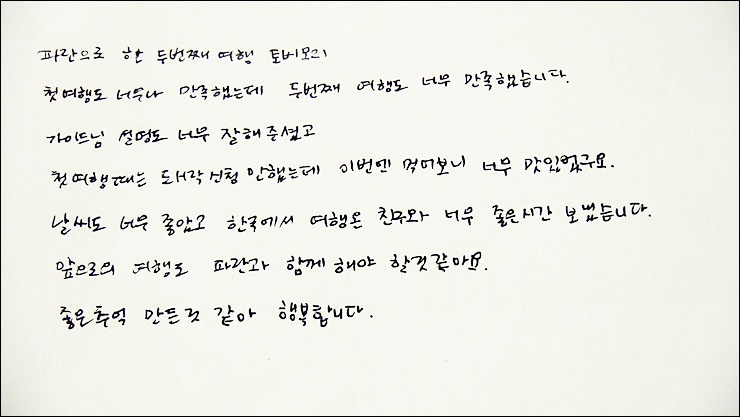 파란으로 한 두번째 여행 토비모리
첫여행도 너무나 만족했는데 두번째 여행도 너무 만족했습니다.
가이드님 설명도 너무 잘해주셨고
첫여행때는 도시락신청 안했는데 이번엔 먹어보니 너무 맛있었구요.
날씨도 너무 좋았고 한국에서 여행온 친구와 너무 좋은시간 보냈습니다.
앞으로의 여행도 파란과 함께 해야 할것같아요.
좋은추억 만든것 같아 행복합니다.